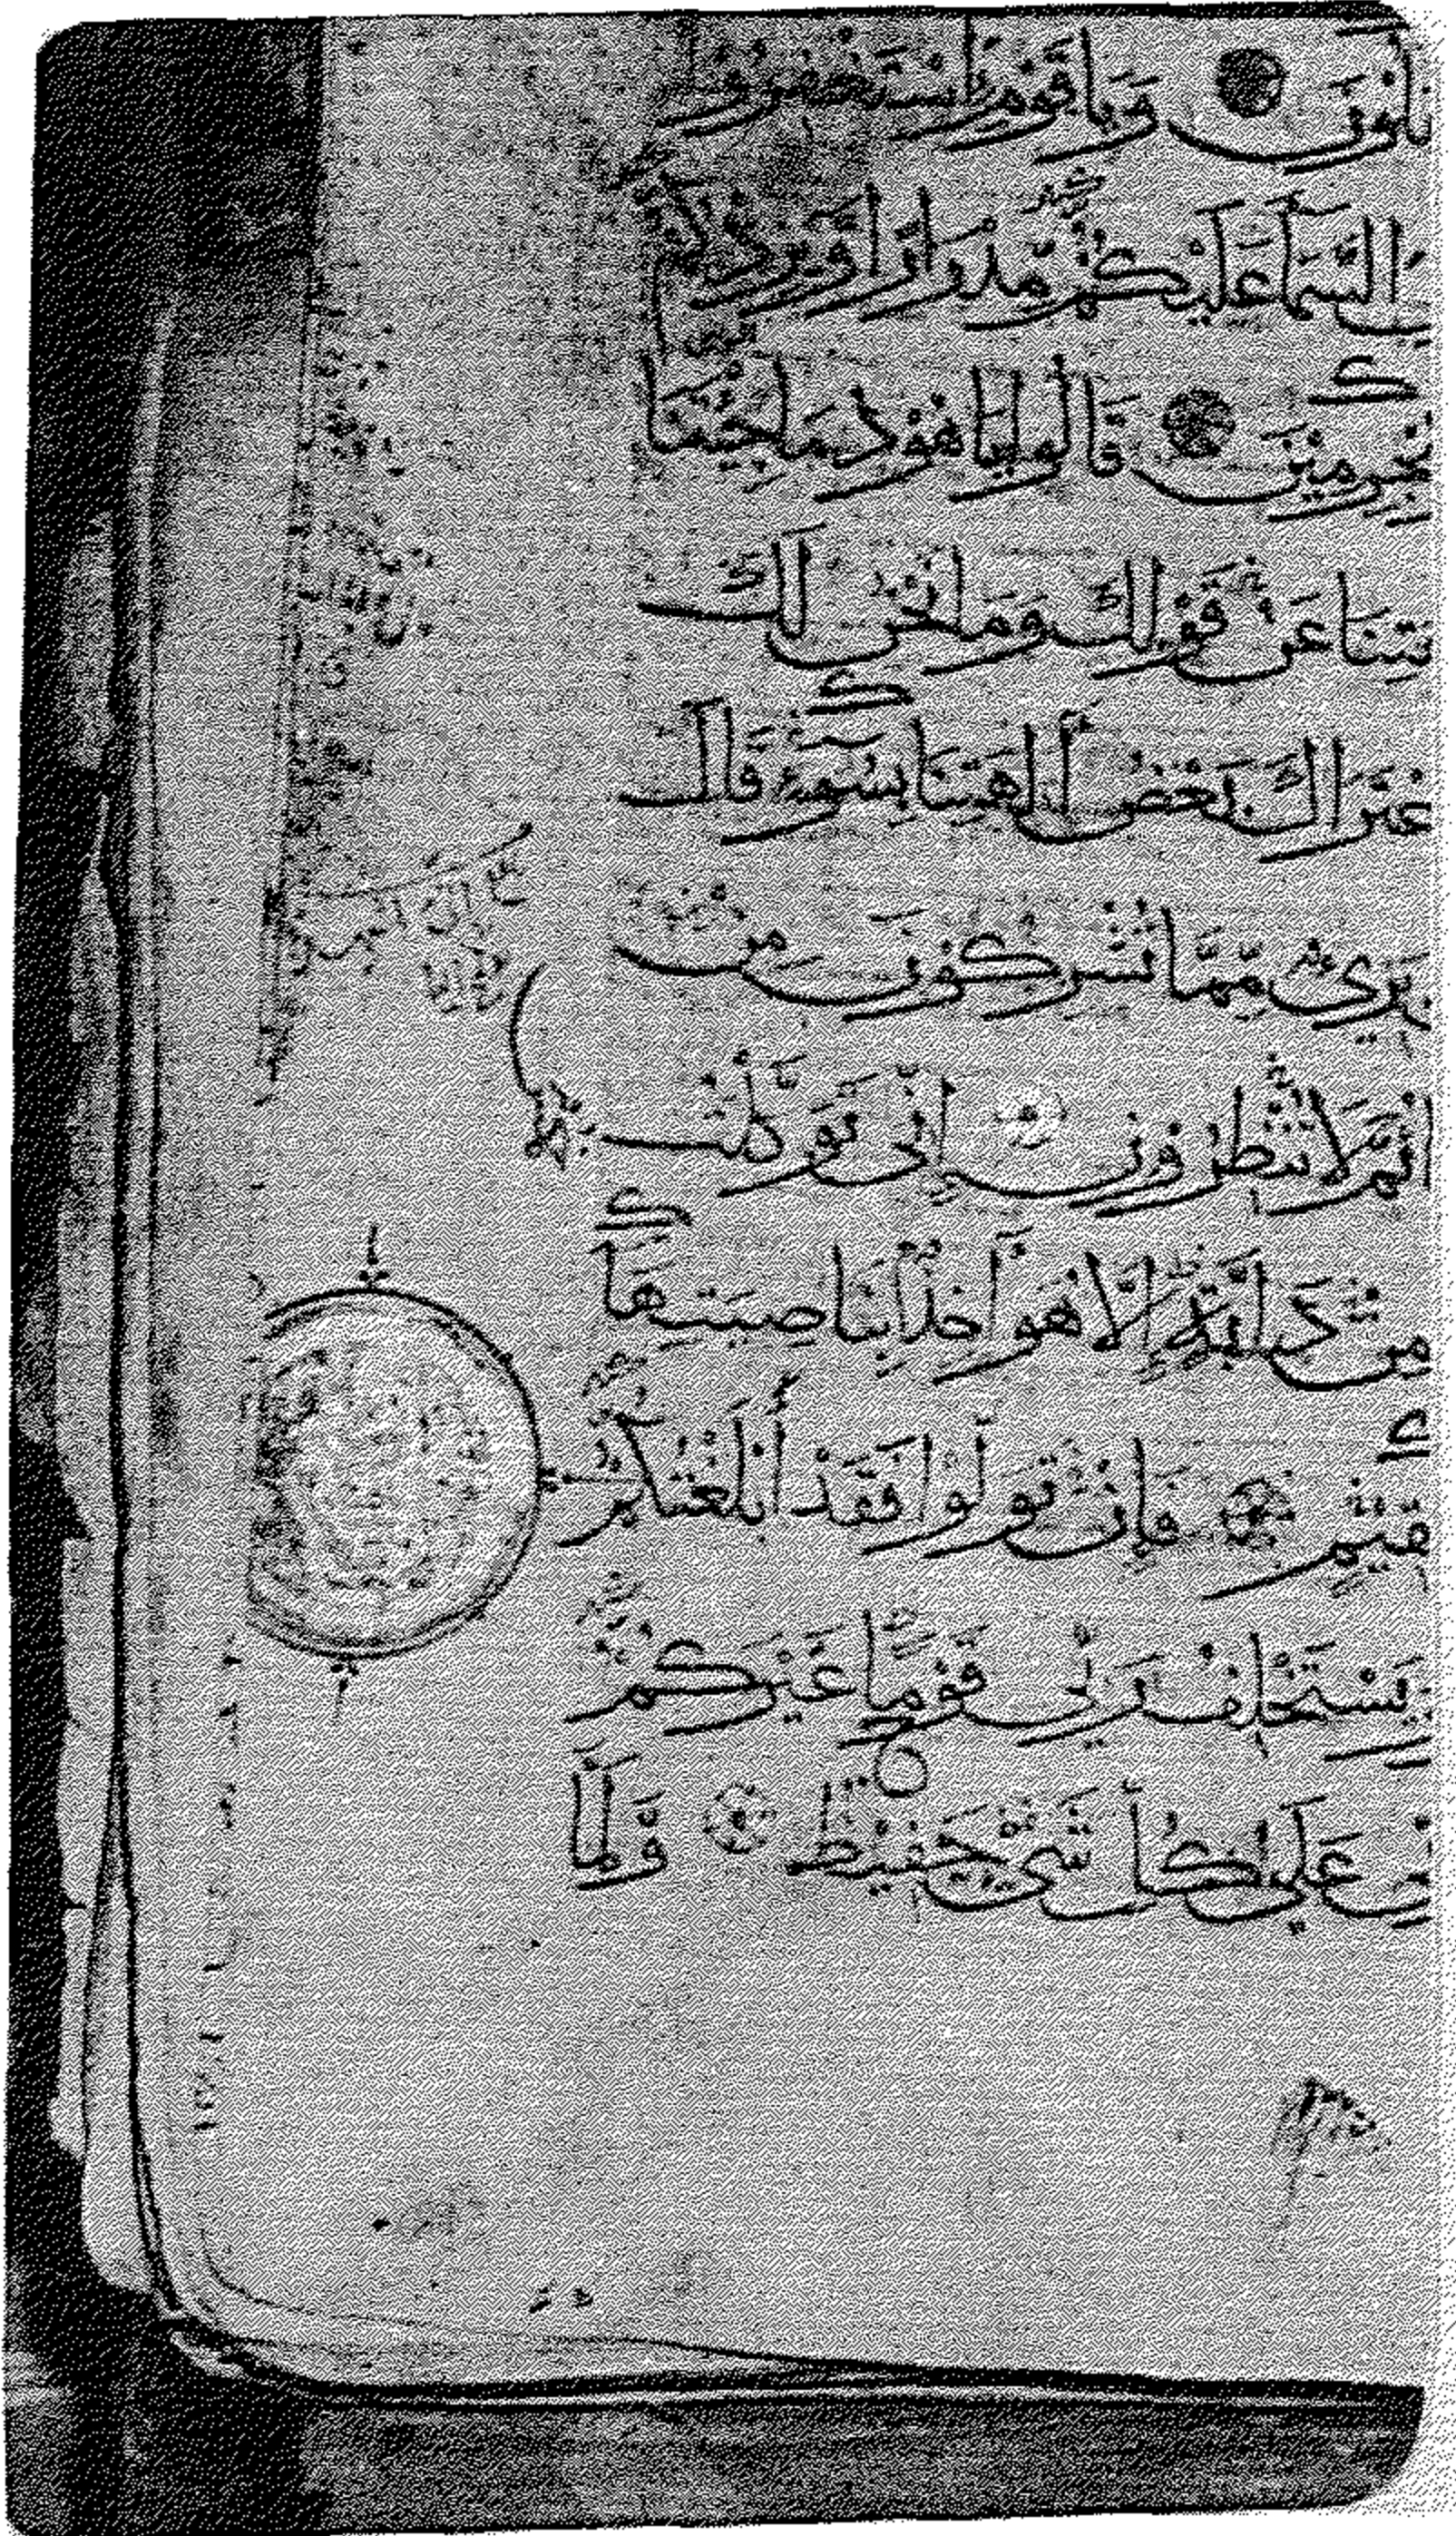 ـلُونَ وَيَا قَوْمِ اسْتَغْفِرُوا
السَّمَآ عَلَيْكُمْ مِّدْرَارًا وَّيَزِدْكُمْ
مُجْرِمِيْنَ قَالُوا يَا هُوْدُ مَا جِئْتَنَا
ـتِنَا عَنْ قَوْلِكَ وَمَا نَحْنُ لَكَ
عْتَرَاكَ بَعْضُ اٰلِهَتِنَا بِسُوْٓءٍ قَالَ
بَرِىْءٌ مِّمَّا تُشْرِكُوْنَ مِنْ
ثُمَّ لَا تُنْظِرُوْنِ اِنِّى تَوَكَّلْتُ
مِنْ دَآبَّةٍ اِلَّا هُوَ اٰخِذٌۢ بِنَاصِيَتِهَا
ـقِيْمٍ فَاِنْ تَوَلَّوْا فَقَدْ اَبْلَغْتُكُمْ
يَسْتَخْلِفُ رَبِّى قَوْمًا غَيْرَكُمْ
ـى عَلٰى كُلِّ شَىْءٍ حَفِيْظٌ وَلَمَّا